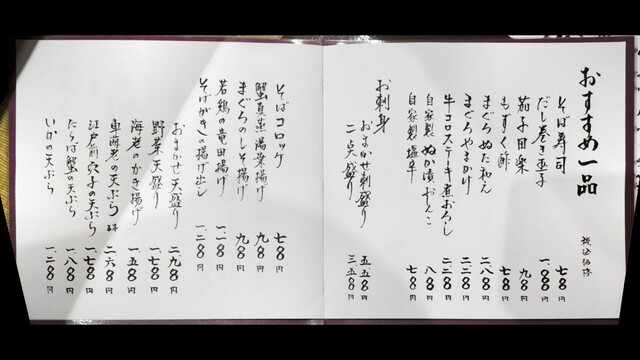 おすすめ一品
税込価格
そば寿司 七〇〇円
だし巻き玉子 一、〇〇〇円
茄子田楽 九〇〇円
もずく酢 七〇〇円
まぐろぬた和え 二、八〇〇円
まぐろやまかけ 二、二〇〇円
牛コロステーキ煮おろし 二、二〇〇円
自家製 ぬか漬おしんこ 八〇〇円
自家製 塩辛 七〇〇円
お刺身
おまかせ刺盛り 五、五〇〇円
二点盛り 三、五〇〇円
そばコロッケ 七〇〇円
蟹真蒸湯葉揚げ 九〇〇円
まぐろのしそ揚げ 九〇〇円
若鶏の竜田揚げ 一、一〇〇円
そばがきの揚げ出し 一、二〇〇円
おまかせ天盛り 二、九〇〇円
野菜天盛り 一、七〇〇円
海老のかき揚げ 一、五〇〇円
車海老の天ぷら 二、六〇〇円
江戸前穴子の天ぷら 一、七〇〇円
たらば蟹の天ぷら 一、八〇〇円
いかの天ぷら 一、二〇〇円